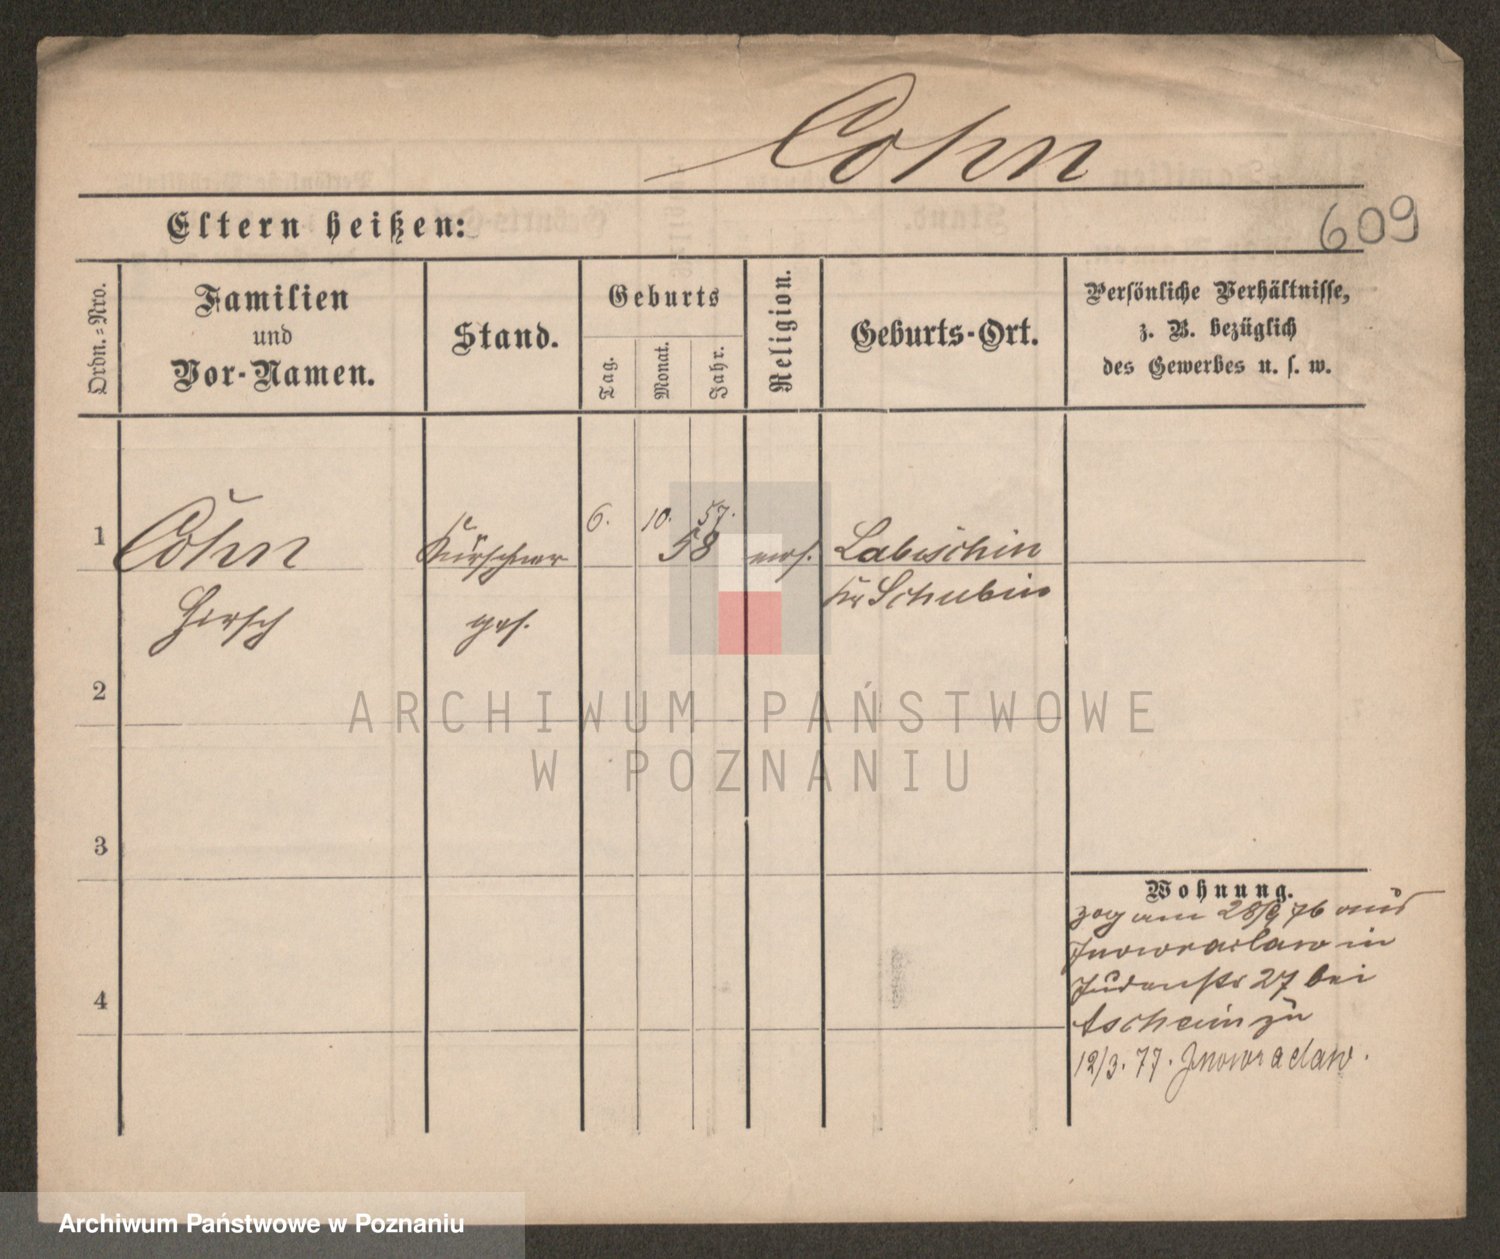 Cohn
609
Eltern heißen:
Ordn.-Nro.
Familien
und
Vor-Namen.
Stand.
Geburts
Tag.
Monat.
Jahr.
Religion.
Geburts-Ort.
Persönliche Verhältnisse,
z. B. bezüglich
des Gewerbes u. s. w.
1
Cohn
Hirsch
Kürschner
ges.
6.
10.
57.
58
mos.
Labischin
Kr Schubin
2
3
4
Wohnung.
zog am 28/9 76 aus
Inowraclaw in
Judenstr 27 bei
zu
12/3. 77. Inowraclaw.
ARCHIWUM PAŃSTWOWE
W POZNANIU
Archiwum Państwowe w Poznaniu